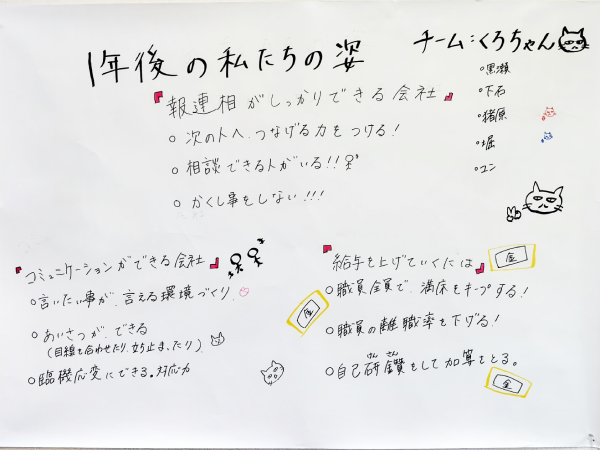 1年後の私たちの姿
チーム:くろちゃん
○黒瀬
○下石
○猪原
○堀
○ユン
『報連相がしっかりできる会社』
○ 次の人へ、つなげる力をつける!
○ 相談できる人がいる!!
○ かくし事をしない!!!
『コミュニケーションができる会社』
○言いたい事が、言える環境づくり
○あいさつが、できる
(目線を合わせたり、立ち止まったり)
○臨機応変にできる。対応力
『給与を上げていくには』
金
○職員全員で、満床をキープする!
金
○職員の離職率を下げる!
けん さん
○自己研鑽をして加算をとる。
金